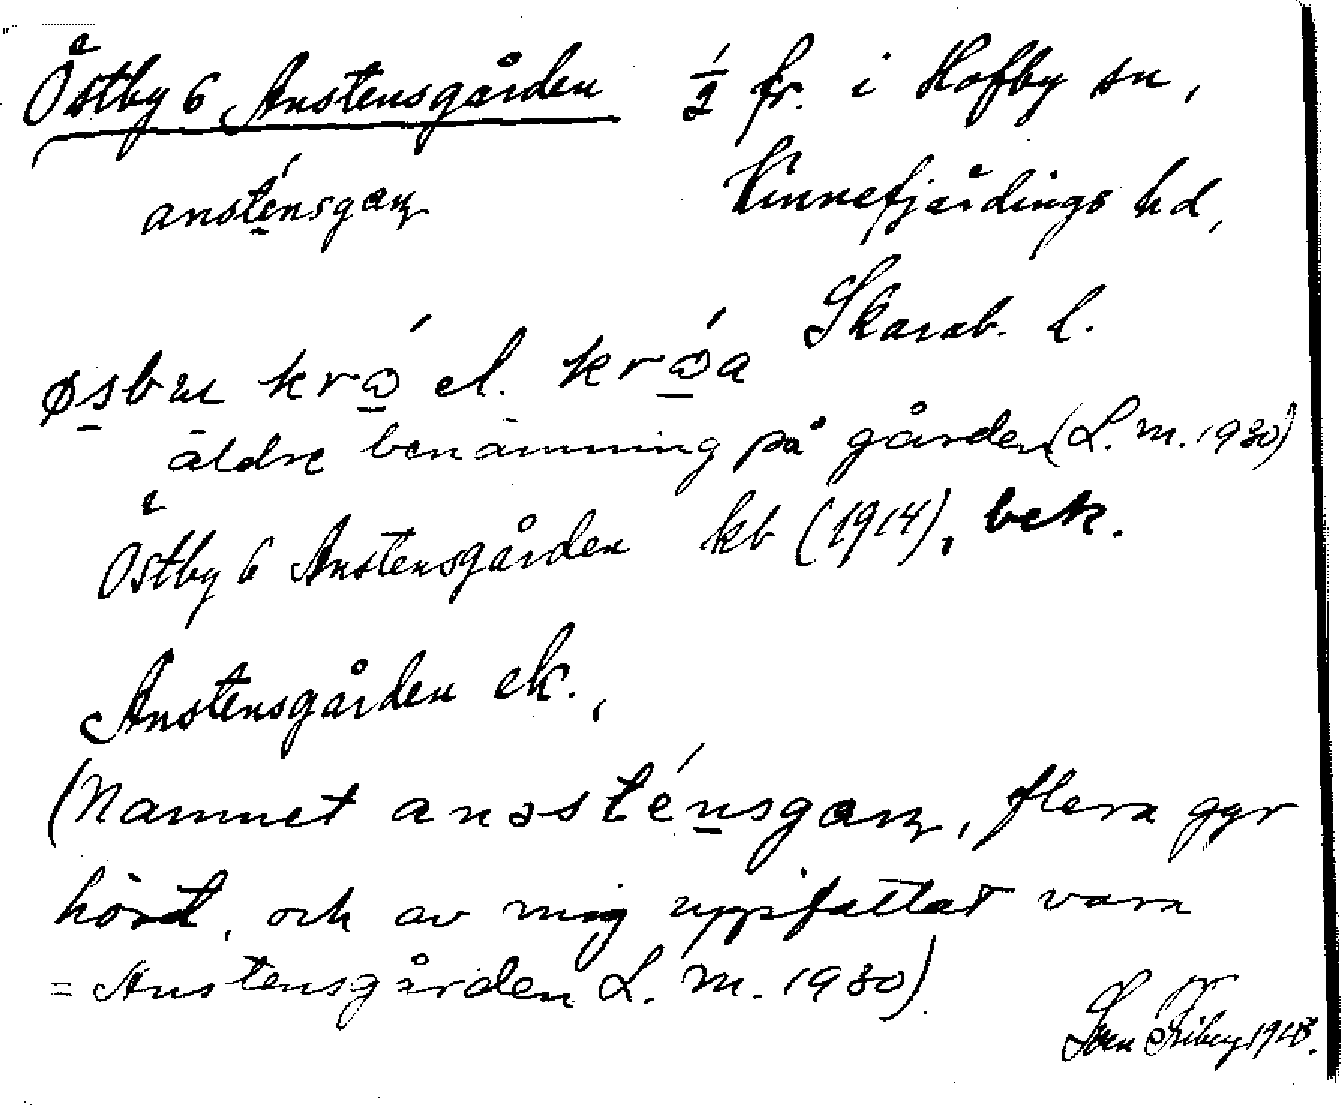 Östby 6 Anstensgården ½ fr. i Hofby sn,
ansténsgaɳ Kinnefjärdings hd,
Skarab. l.
øsbæ krɔ́ el. krɔ́a
äldre benämning på gården (L. M. 1930)
Östby 6 Anstensgården kb (1914), bek.
Anstensgården ek.,
(Namnet ansténsgaɳ, flera ggr
hört, och av mig uppfattat vara
= Anstensgården L. M. 1930)
Sven Friberg